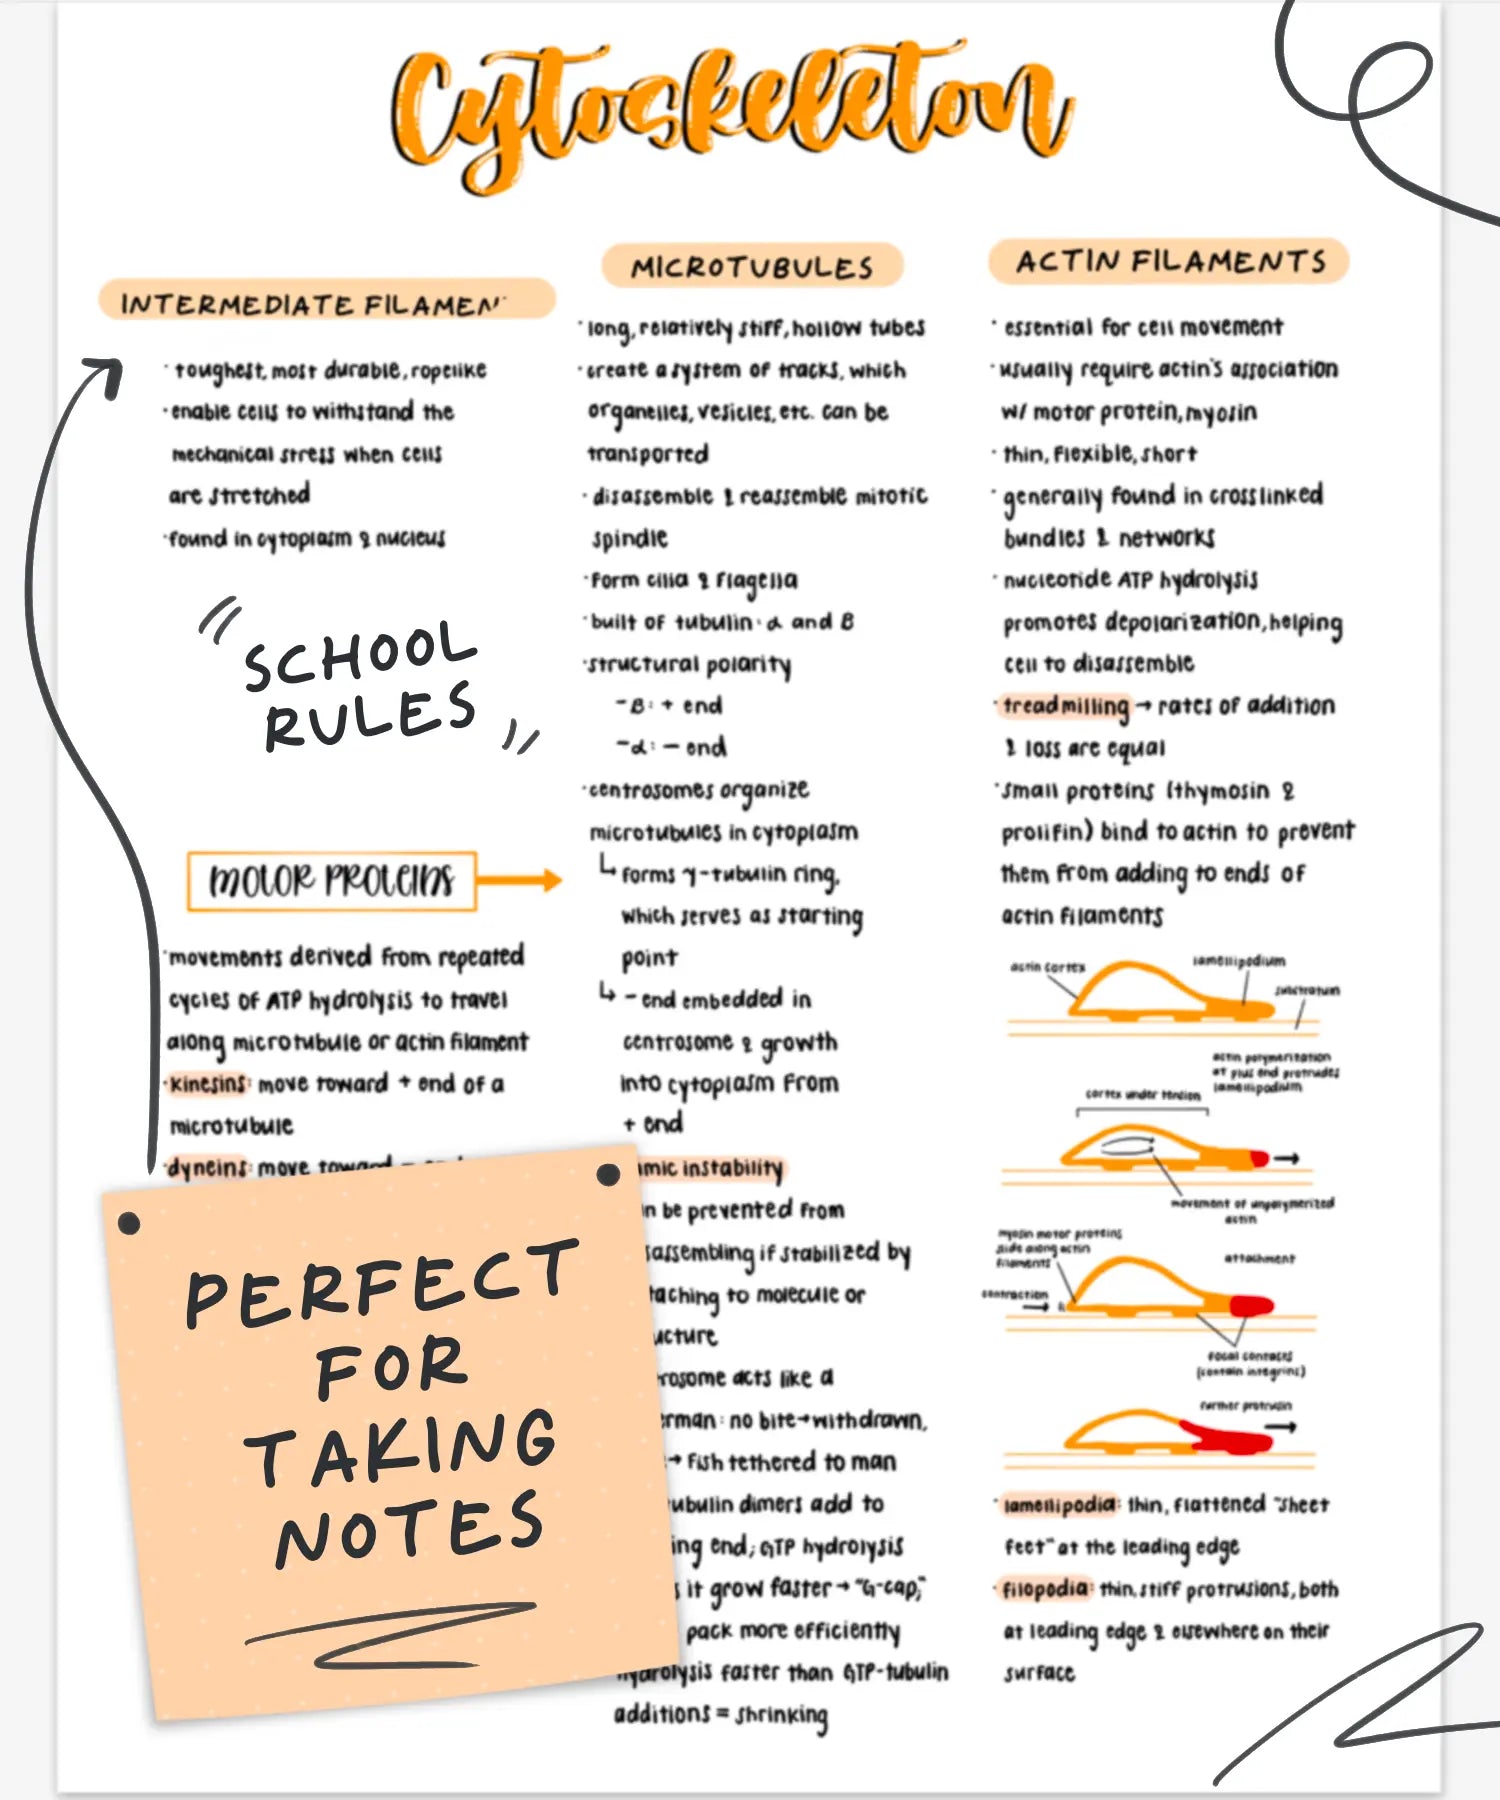 Cytoskeleton
INTERMEDIATE FILAMEN
· toughest, most durable, ropelike
· enable cells to withstand the
mechanical stress when cells
are stretched
· found in cytoplasm & nucleus
SCHOOL
RULES
MOTOR PROTEINS
· movements derived from repeated
cycles of ATP hydrolysis to travel
along microtubule or actin filament
· kinesins: move toward + end of a
microtubule
· dyneins: move toward -
PERFECT
FOR
TAKING
NOTES
MICROTUBULES
· long, relatively stiff, hollow tubes
· create a system of tracks, which
organelles, vesicles, etc. can be
transported
· disassemble & reassemble mitotic
spindle
· form cilia & flagella
· built of tubulin: α and β
· structural polarity
- β: + end
- α: - end
· centrosomes organize
microtubules in cytoplasm
↳ forms γ-tubulin ring,
which serves as starting
point
↳ - end embedded in
centrosome & growth
into cytoplasm from
+ end
mic instability
n be prevented from
sassembling if stabilized by
taching to molecule or
ucture
rosome acts like a
erman: no bite→withdrawn,
→ fish tethered to man
ubulin dimers add to
ing end; GTP hydrolysis
s it grow faster → "G-cap,"
pack more efficiently
hydrolysis faster than GTP-tubulin
additions = shrinking
ACTIN FILAMENTS
· essential for cell movement
· usually require actin's association
w/ motor protein, myosin
· thin, flexible, short
· generally found in crosslinked
bundles & networks
· nucleotide ATP hydrolysis
promotes depolarization, helping
cell to disassemble
· treadmilling → rates of addition
& loss are equal
· small proteins (thymosin &
prolifin) bind to actin to prevent
them from adding to ends of
actin filaments
actin cortex
lamellipodium
substratum
actin polymerization
at plus end protrudes
lamellipodium
cortex under tension
movement of unpolymerized
actin
myosin motor proteins
slide along actin
filaments
attachment
contraction
focal contacts
(contain integrins)
further protrusin
· lamellipodia: thin, flattened "sheet
feet" at the leading edge
· filopodia: thin, stiff protrusions, both
at leading edge & elsewhere on their
surface